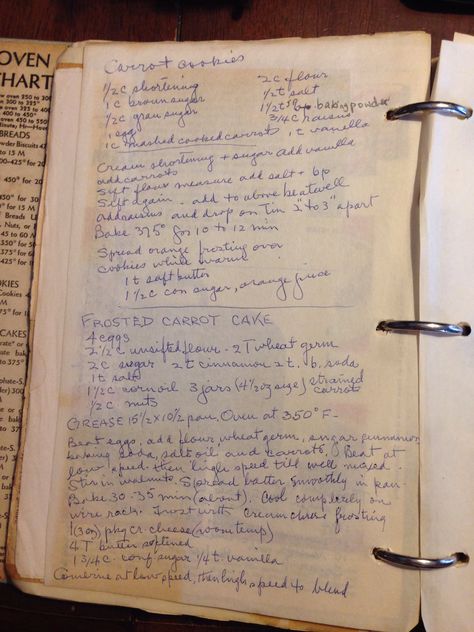 OVEN
CHART
BREADS
Carrot Cookies
1/2 c shortening
1 c brown sugar
1/2 c gran sugar
1 egg
1 c mashed cooked carrots
2 c flour
1/2 t salt
baking powder
3/4 c raisins
1 t vanilla
Cream shortening + sugar add vanilla
add carrots
Sift flour measure add salt + bp
Sift again. add to above beat well
add raisins and drop on tin 2" to 3" apart
Bake 375° for 10 to 12 min
Spread orange frosting over
cookies while warm
1 t soft butter
1 1/2 c con sugar, orange juice
FROSTED CARROT CAKE
4 eggs
2 1/2 c unsifted flour - 2 T wheat germ
2 c sugar 2 t cinnamon 2 t. b. soda
1 t salt
1 1/2 c corn oil 3 jars (4 1/2 oz size) strained
carrot
1/2 c nuts
GREASE 15 1/2 x 10 1/2 pan. Oven at 350° F-
Beat eggs, add flour, wheat germ, sugar, cinnamon
baking soda, salt oil and carrots. Beat at
low speed. then high speed till well mixed.
Stir in walnuts. Spread batter smoothly in pan-
Bake 30-35 min (about). Cool completely on
wire rock. Frost with cream cheese frosting
1 (3 oz) pkg cr. cheese (room temp)
4 T butter softened
1 3/4 c. conf sugar 1/4 t. vanilla
Combine at low speed, then high speed to blend